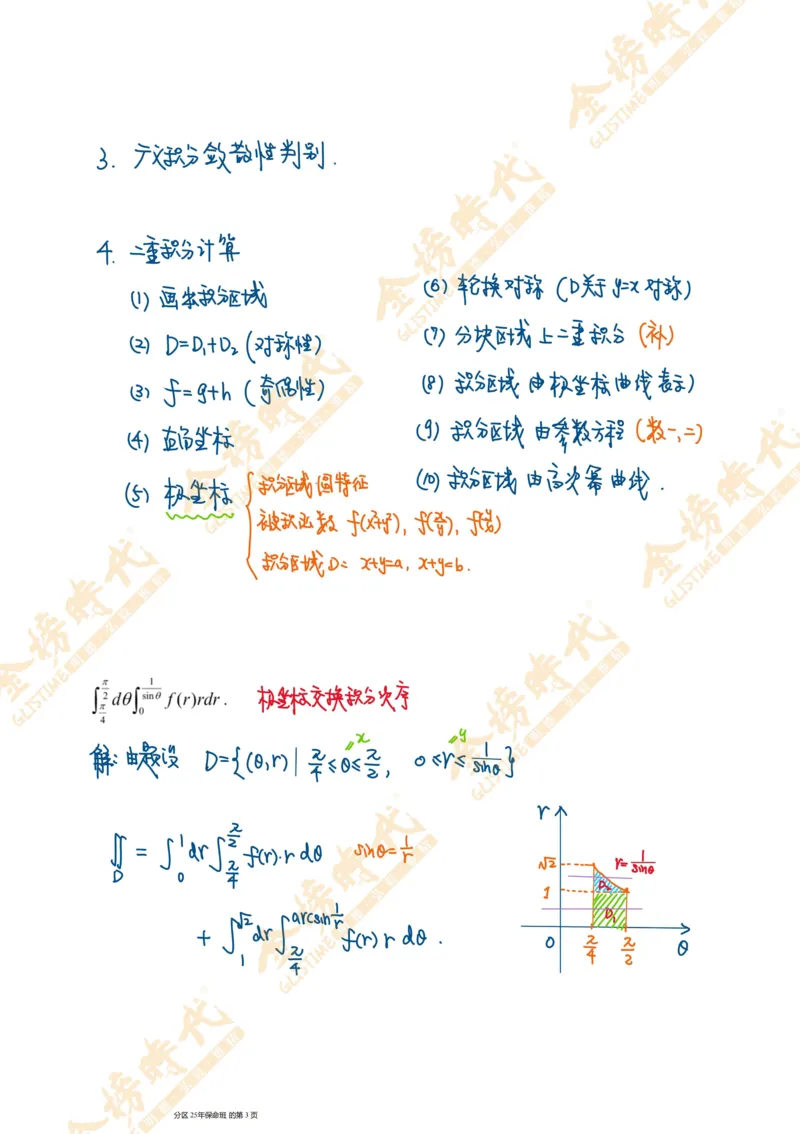 3. 广义积分敛散性判别.
4. 二重积分计算
(1) 画出积分区域
(2) D=D₁+D₂ (对称性)
(3) f=g+h (奇偶性)
(4) 直角坐标
(5) 极坐标
积分区域圆特征
被积函数 f(x²+y²), f(y/x), f(x/y)
积分区域D: x+y=a, x+y=b.
(6) 轮换对称 (D关于 y=x 对称)
(7) 分块区域上二重积分 (补)
(8) 积分区域由极坐标曲线表示)
(9) 积分区域由参数方程 (数一,二)
(10) 积分区域由高次幂曲线.
∫_{π/4}^{π/2} dθ ∫_0^{1/sinθ} f(r)rdr. 极坐标交换积分次序
x y
解: 由题设 D={(θ,r) | π/4≤θ≤π/2, 0≤r≤1/sinθ}
∬_D = ∫_0^1 dr ∫_{π/4}^{π/2} f(r)·r dθ sinθ=1/r
+ ∫_1^{√2} dr ∫_{π/4}^{arcsin 1/r} f(r) r dθ.
r
√2
r=1/sinθ
D₂
1
D₁
0 π/4 π/2 θ
分区 25年保命班 的第 3 页
金榜時代
GLISTIME